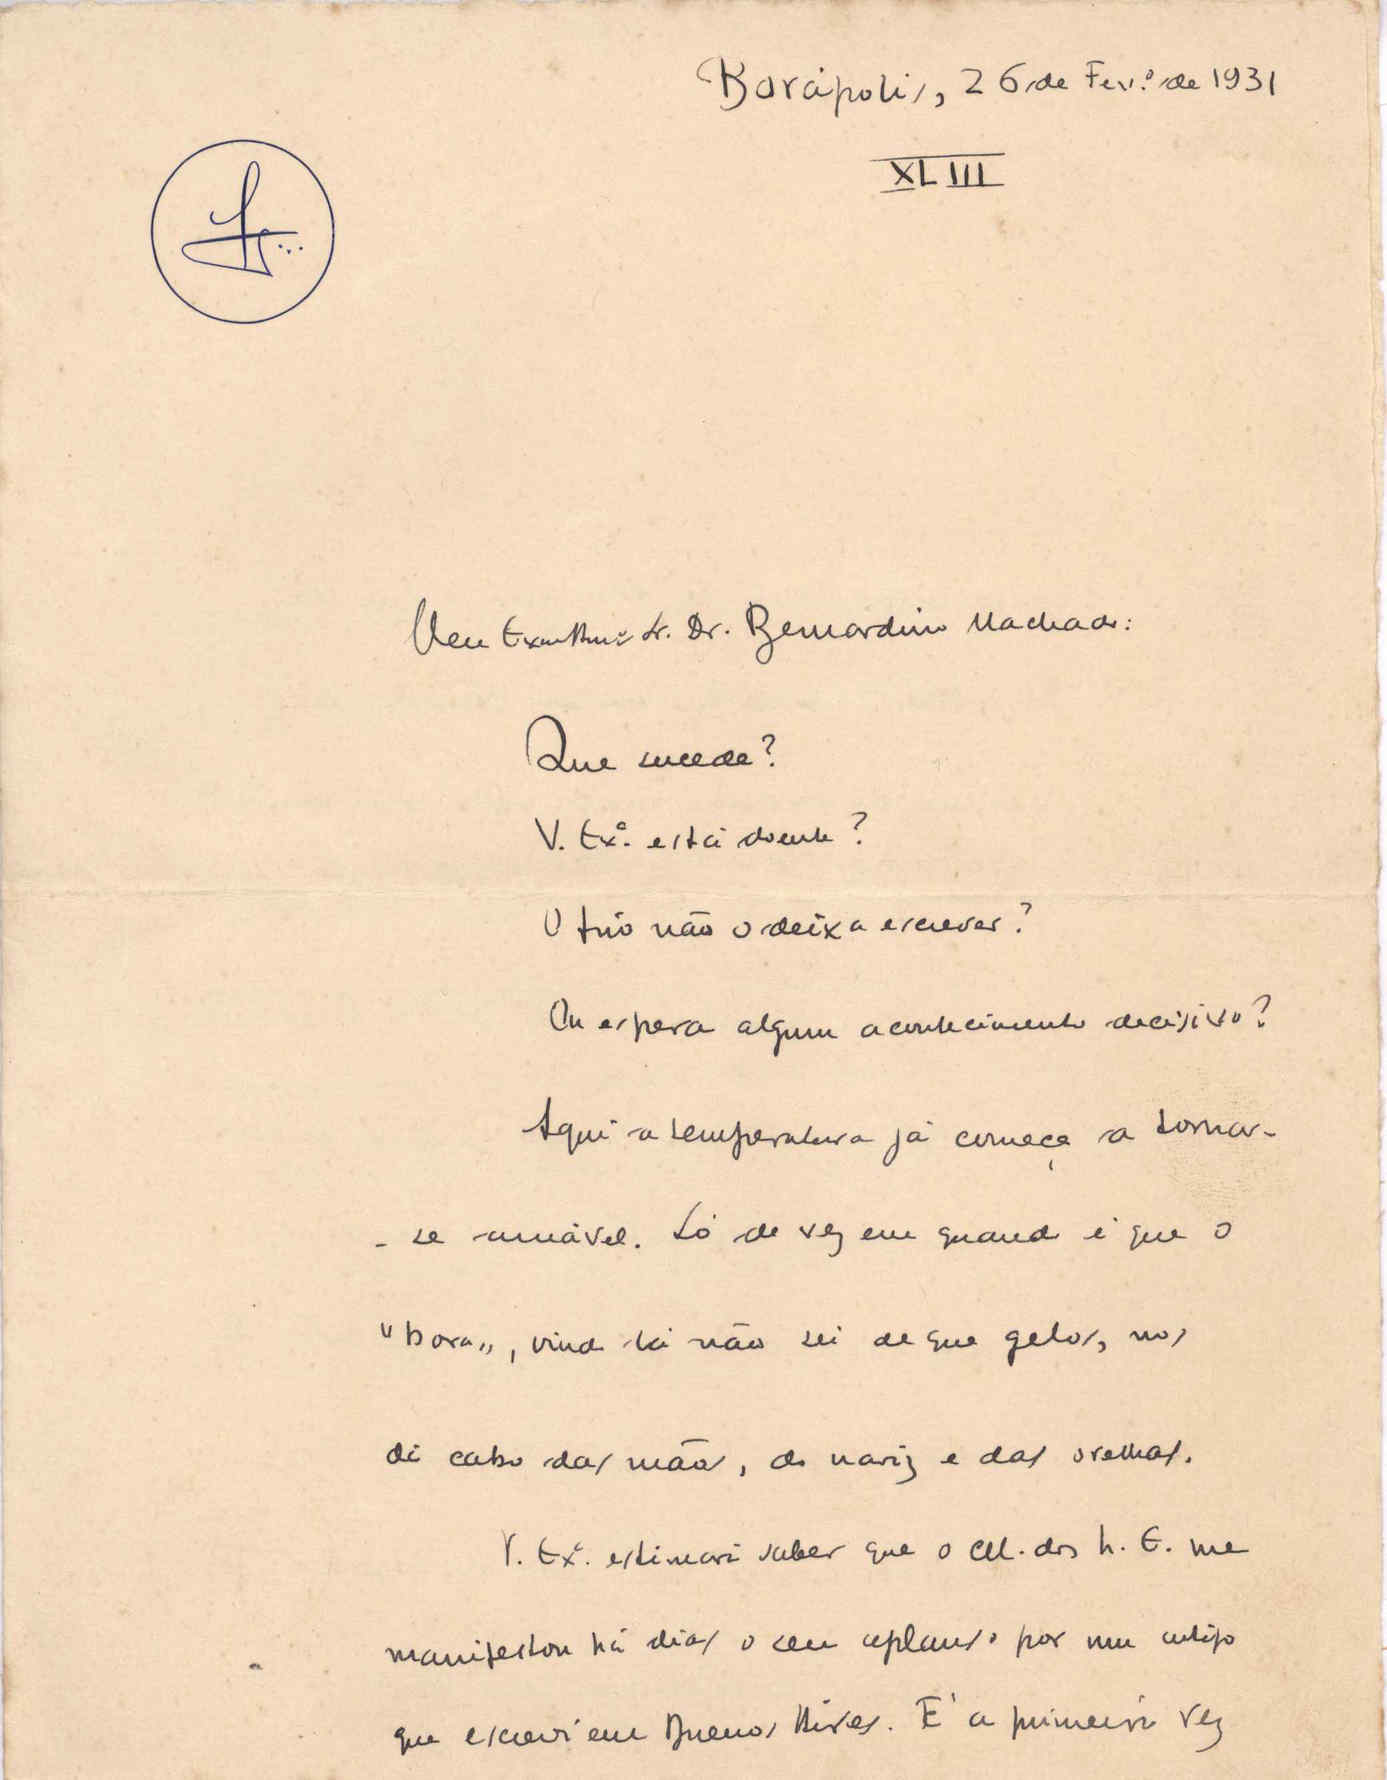 Borápolis, 26 de Fev.º de 1931
XLIII
Meu Excellmº Sr. Dr. Bernardino Machado:
Que sucede?
V. Exª. está doente?
O frio não o deixa escrever?
Ou espera algum acontecimento decisivo?
Aqui a temperatura já começa a tornar-
-se amável. Só de vez em quando é que o
"bora", vindo lá não sei de que gelos, nos
dá cabo das mãos, do nariz e das orelhas.
V. Exª. estimará saber que o dos N. E. me
manifestou há dias o seu aplauso por um artigo
que escrevi em Buenos Aires. E' a primeira vez